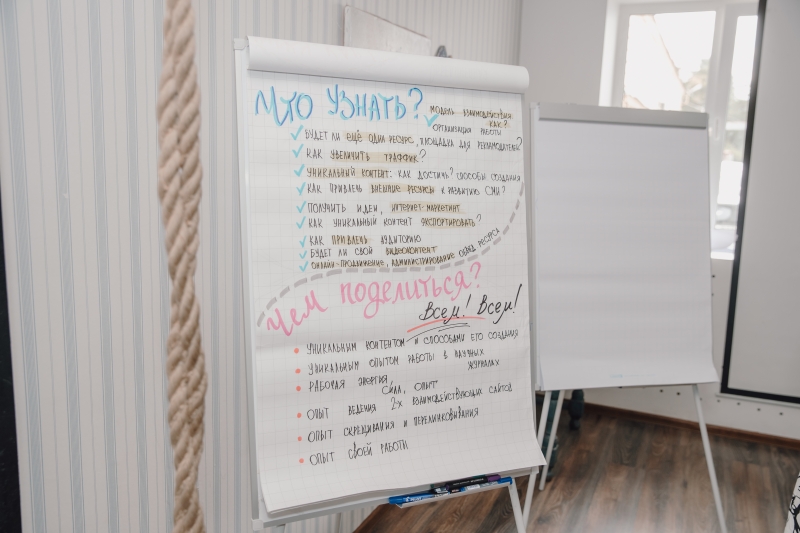 Что узнать?
модель взаимодействия: как?
организация работы
будет ли ещё один ресурс, площадка для рекламодателей?
как увеличить траффик?
уникальный контент: как достичь? способы создания
как привлечь внешние ресурсы к развитию СМИ?
получить идеи, интернет-маркетинг
как уникальный контент экспортировать?
как привлечь аудиторию
будет ли свой видеоконтент
онлайн-продвижение, администрирование ресурса
Чем поделиться?
Всем! Всем!
уникальным контентом и способами его создания
уникальным опытом работы в научных журналах
рабочая энергия, сила, опыт
опыт ведения 2-х взаимодействующих сайтов
опыт скрещивания и перелинковывания
опыт своей работы